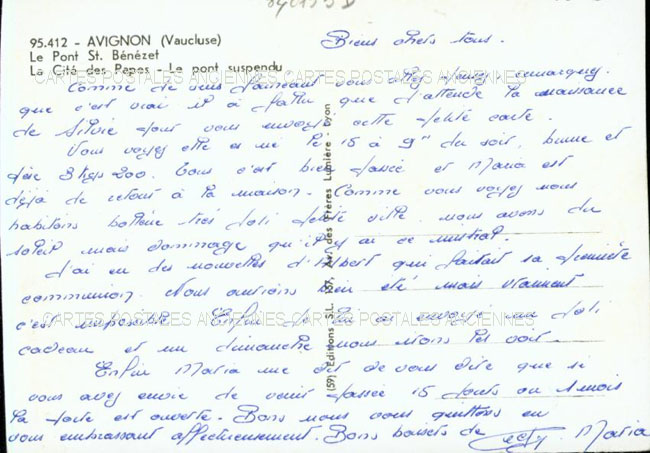 95.412 - AVIGNON (Vaucluse)
Le Pont St. Bénézet
La Cité des Papes - Le pont suspendu
Biens chers tous.
Comme de vrais vous
que c'est vrai il a fallu que j'attende la naissance
de Silvie pour vous envoyer cette petite carte.
Vous voyez elle est née le 15 à 9 h du soir, brune et
pèse 3 kgs 200. Tous c'est bien passé et Maria est
déjà de retour à la maison. Comme vous voyez nous
habitons une très joli petite ville. nous avons du
soleil mais dommage qu'il y ai ce mistral.
J'ai eu des nouvelles d'Albert qui faisait sa première
communion. Nous aurions bien été mais vraiment
c'est impossible. Enfin je lui ai envoyé un joli
cadeau et un dimanche nous irons les voir.
Enfin Maria me dit de vous dire que si
vous avez envie de venir passer 15 jours ou 1 mois
la porte est ouverte. Bons nous vous quittons en
vous embrassant affectueusement. Bons baisers de Maria
(59) Editions S.L. 157, Av. des Frères Lumière - Lyon
CARTES POSTALES ANCIENNES CARTES POSTALES ANCIENNES
CARTES POSTALES ANCIENNES CARTES POSTALES ANCIENNES